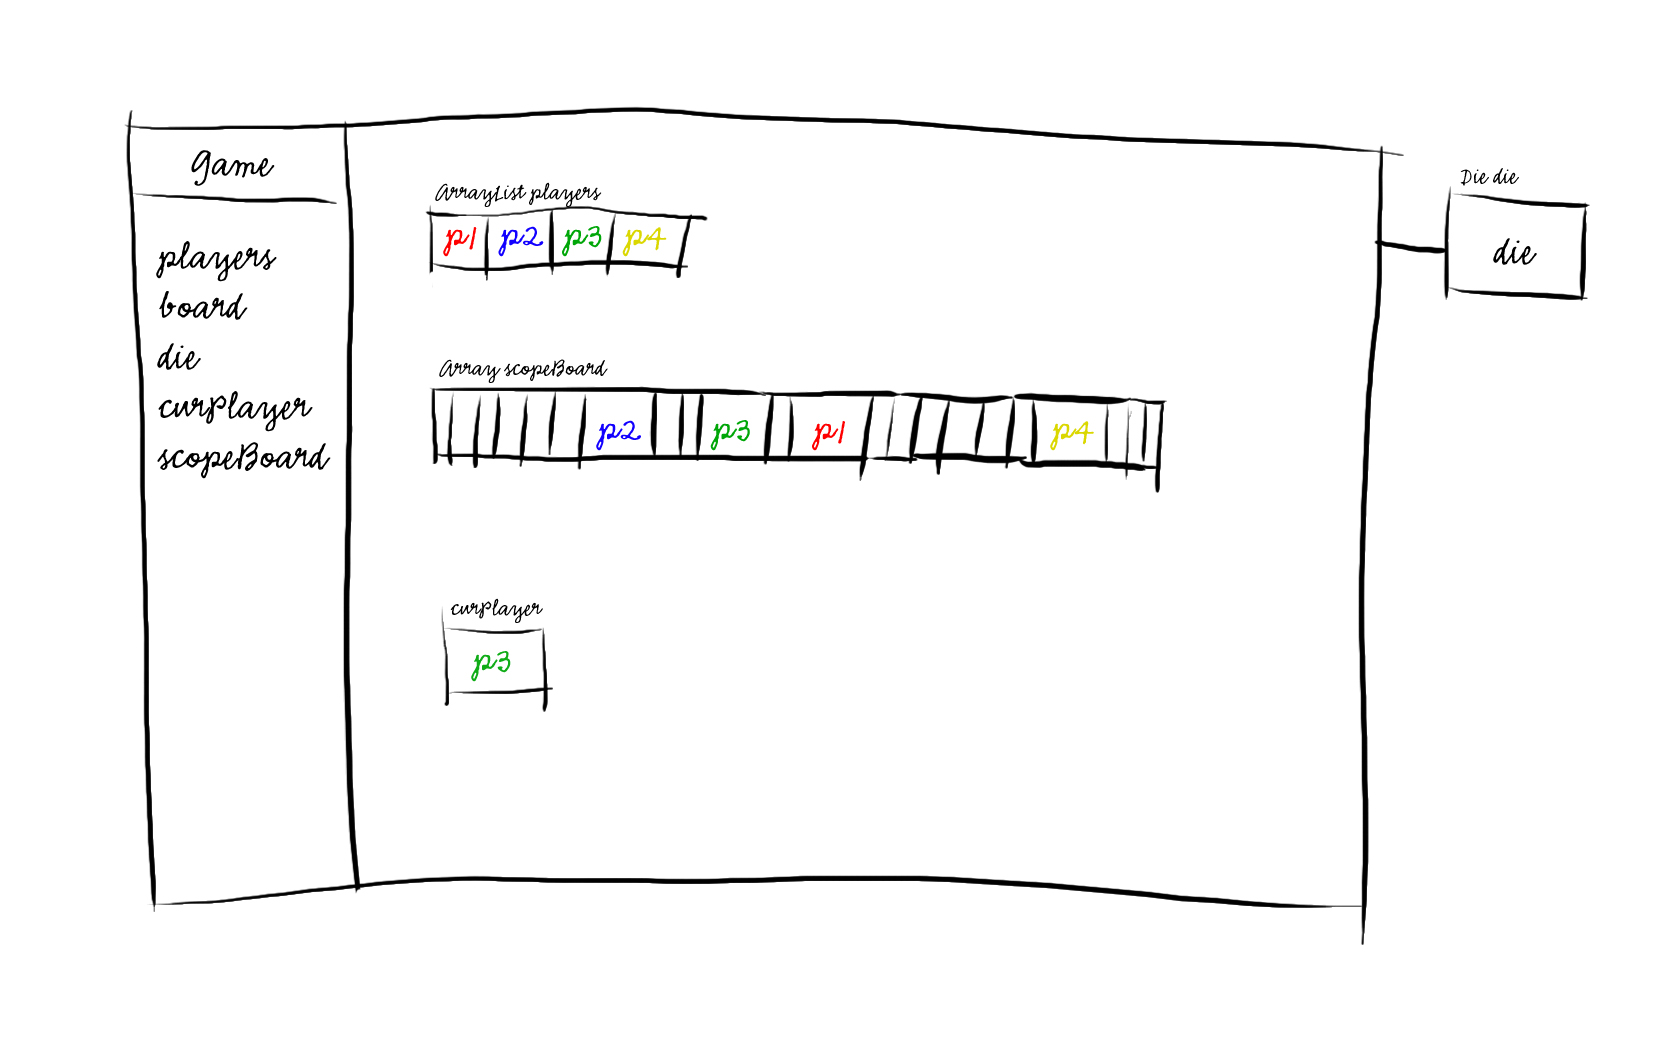 Game
players
board
die
curPlayer
scopeBoard
ArrayList players
p1 p2 p3 p4
Array scopeBoard
p2 p3 p1 p4
curPlayer
p3
Die die
die